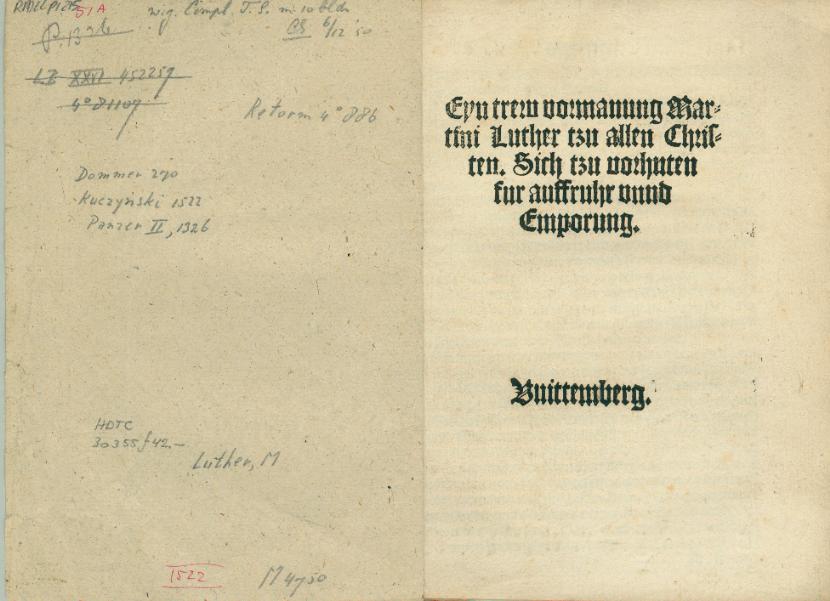 51A
LZ XXVI 452257
4° 81109
Reform 4° 886
Dommer 270
Kuczyński 1522
Panzer II, 1326
HDTC
30355 f 42.—
Luther, M
1522
M 4750
Eyn trew vormanung Mar⸗
tini Luther tzu allen Chris⸗
ten. Sich tzu vorhuten
fur auffruhr vnnd
Emporung.
Vuittemberg.